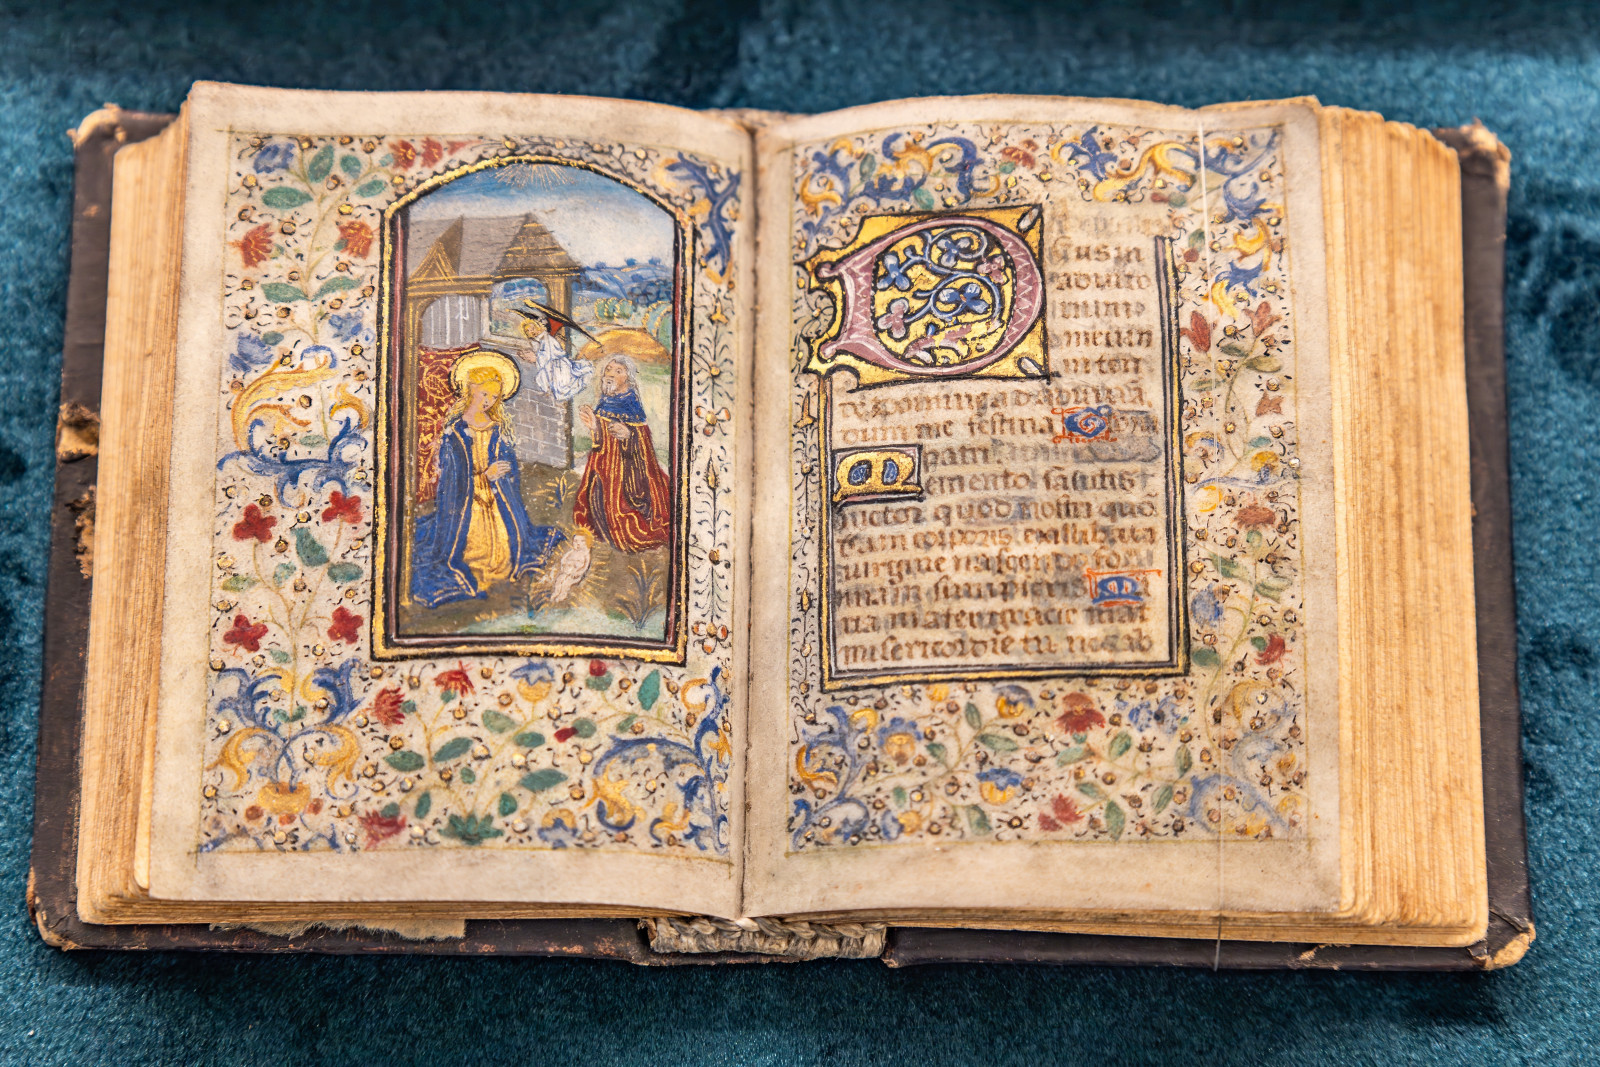 D
us in
adiuto
meum
inten
de Domine ad adiuuā
dum me festina G
patri
Memento salutis
auctor quod nostri quōd
dam corporis ex illibata
uirgine nascendo for
mam sumpseris Ma
ria mater gracie mat
misericordie tu nos ab